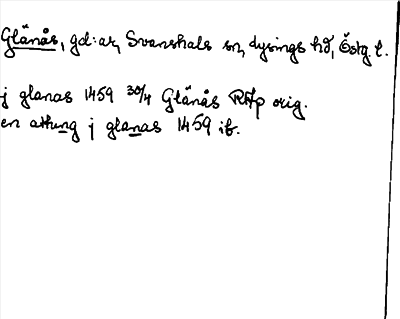 Glänås, gd:ar, Svanshals sn, Lysings hd, Östg. l.
j glanas 1459 30/4 Glänås RAp orig.
en athung j glanas 1459 ib.